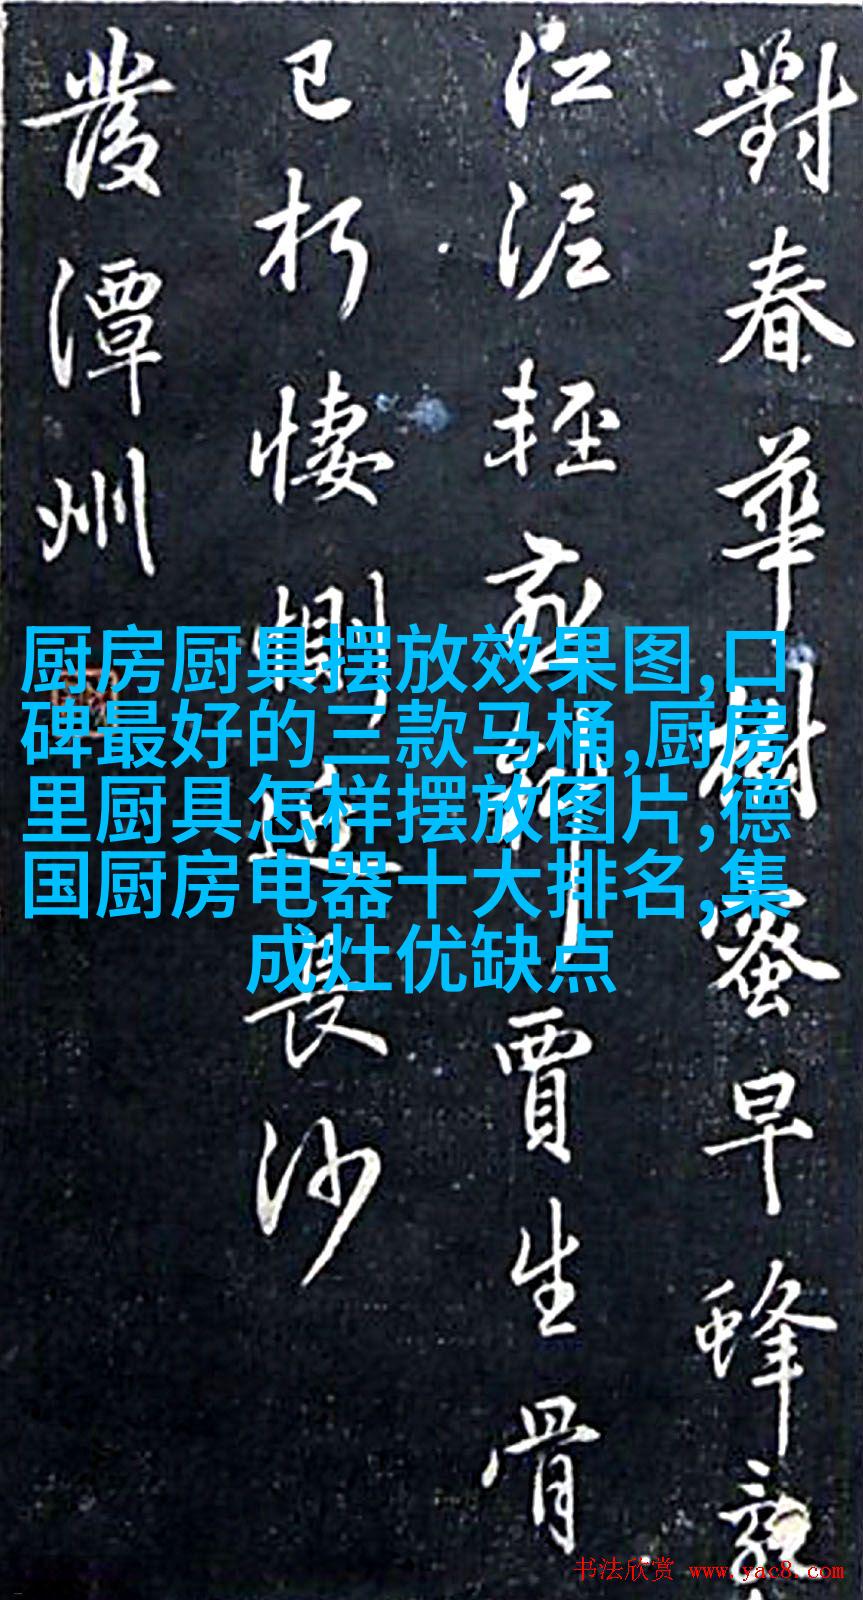 對春華樹蜜早蜂
江泥輕燕斜賈生骨
已朽悽惻近長沙
發潭州
厨房厨具摆放效果图,口
碑最好的三款马桶,厨房
里厨具怎样摆放图片,德
国厨房电器十大排名,集
成灶优缺点
书法欣赏 www.yac8.com